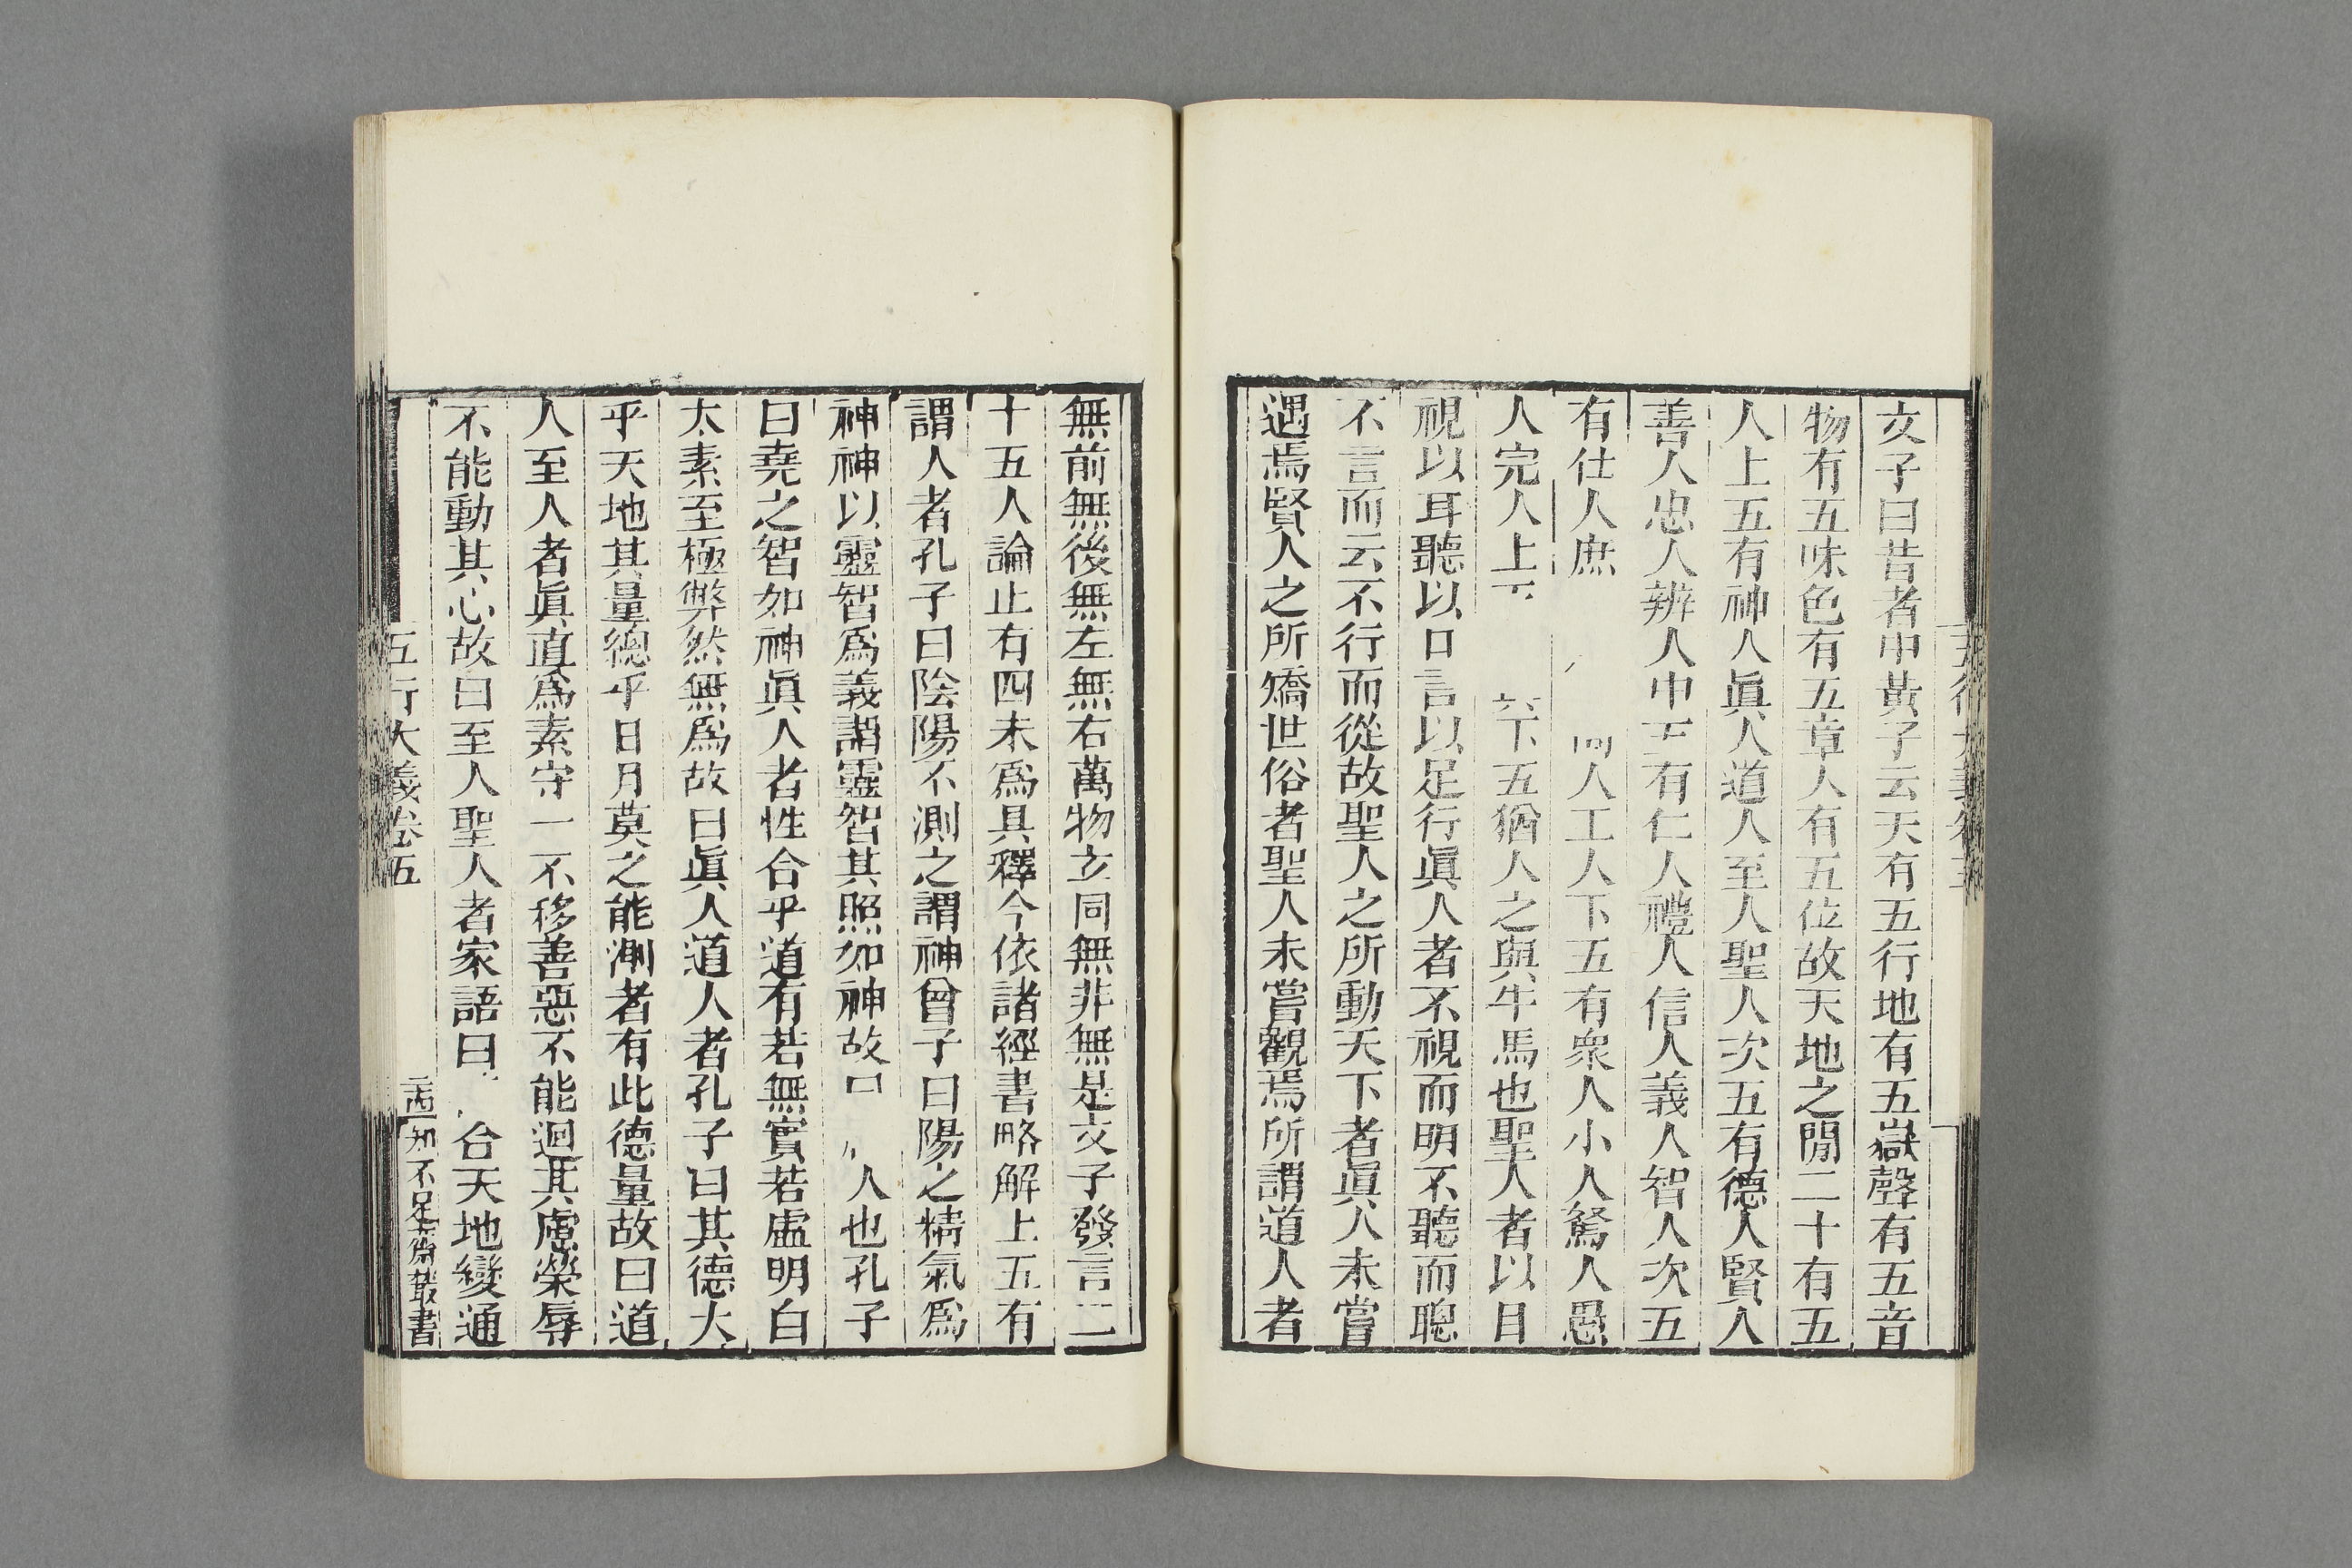 文子曰昔者中黃子云天有五行地有五嶽聲有五音
物有五味色有五章人有五位故天地之閒二十有五
人上五有神人眞人道人至人聖人次五有德人賢人
善人忠人辨人中五有仁人禮人信人義人智人次五
有仕人庶人工人下五有衆人小人駑人愚
人完人上下五猶人之與牛馬也聖人者以目
視以耳聽以口言以足行眞人者不視而明不聽而聰
不言而云不行而從故聖人之所動天下者眞人未嘗
遇焉賢人之所矯世俗者聖人未嘗觀焉所謂道人者
無前無後無左無右萬物玄同無非無是文子發言二
十五人論止有四未爲具釋今依諸經書略解上五有
謂人者孔子曰陰陽不測之謂神曾子曰陽之精氣爲
神神以靈智爲義謂靈智其照如神故曰人也孔子
曰堯之智如神眞人者性合乎道有若無實若虛明白
太素至極弊然無爲故曰眞人道人者孔子曰其德大
乎天地其量德乎日月莫之能測者有此德量故曰道
人至人者眞直爲素守一不移善惡不能迴其慮榮辱
不能動其心故曰至人聖人者家語曰合天地變通
五行大義卷五
知不足齋叢書